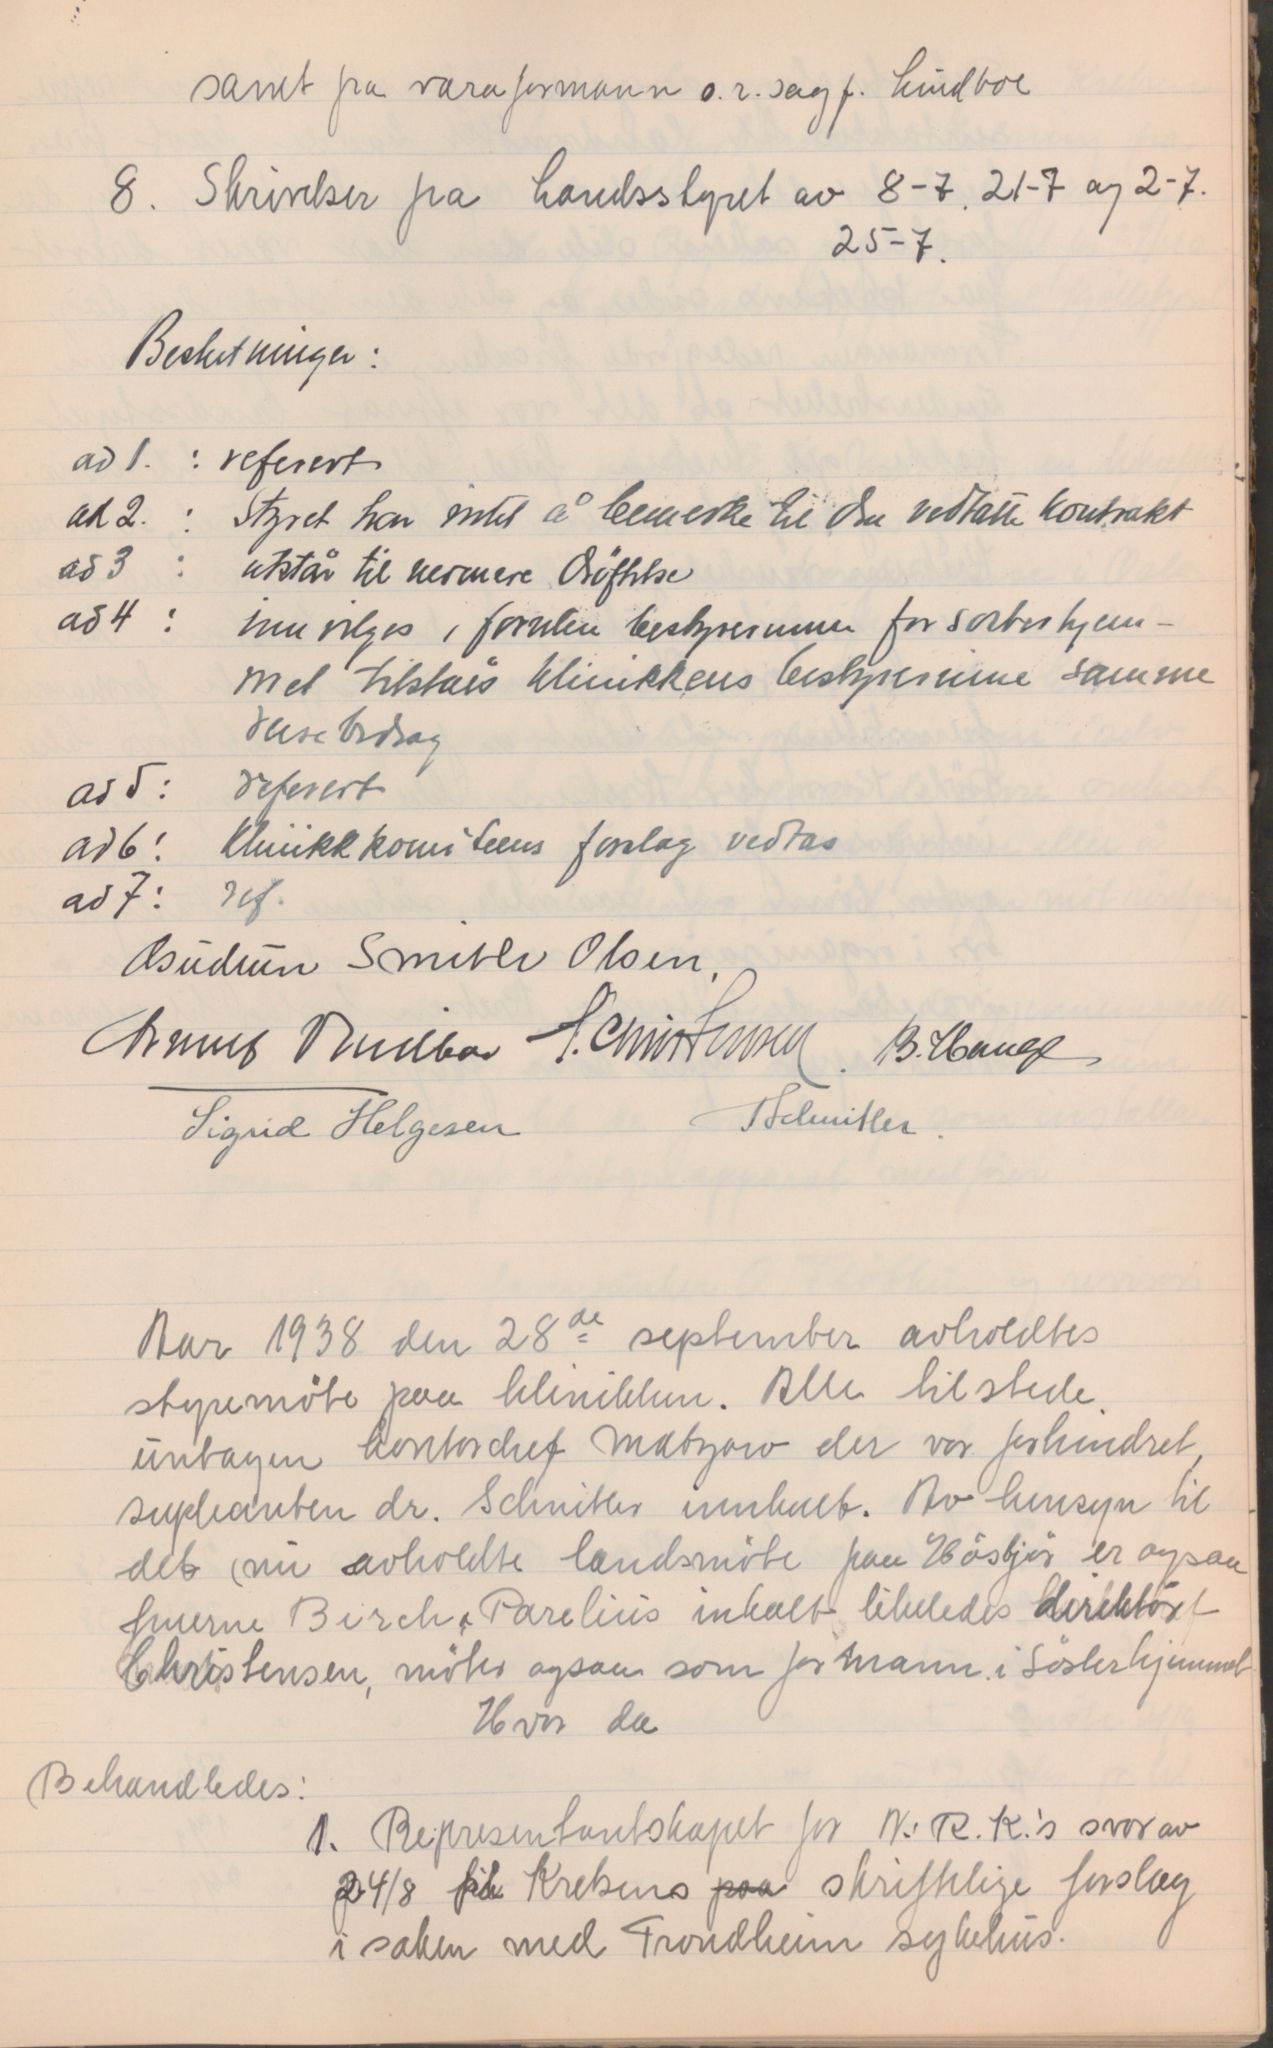 samt fra varaformann o.r.sagf. Lindboe
8. Skrivelser fra Landsstyret av 8-7, 21-7 og 2-7.
25-7.
Beslutninger:
ad 1. : referert
ad 2. : Styret har intet å bemerke til den vedtatte kontrakt
ad 3 : utstår til nermere drøftelse
ad 4 : innvilges, foruten bestyrerinnen for søsterhjem-
met tilståes klinikkens bestyrerinne samme
reisebidrag
ad 5: referert
ad 6: Klinikkkomiteens forslag vedtas
ad 7: ref.
Gudrun Smith Olsen.
B. Hauge
Sigrid Helgesen
Schnitler.
Aar 1938 den 28de september avholdtes
styremöte paa klinikken. Alle tilstede
untagen kontorchef Matzow der var forhindret,
supleanten dr. Schnitler innkalt. Av hensyn til
det nu avholdte landsmöte paa Hösbjör er ogsaa
fruerne Birch, Parelius inkalt likeledes direktör
Christensen, möter ogsaa som formann i Sösterhjemmet
Hvor da
Behandledes:
1. Representantskapet for N. R. K.'s svar av
24/8 til Kretsens paa skriftlige forslag
i saken med Trondheim sykehus.